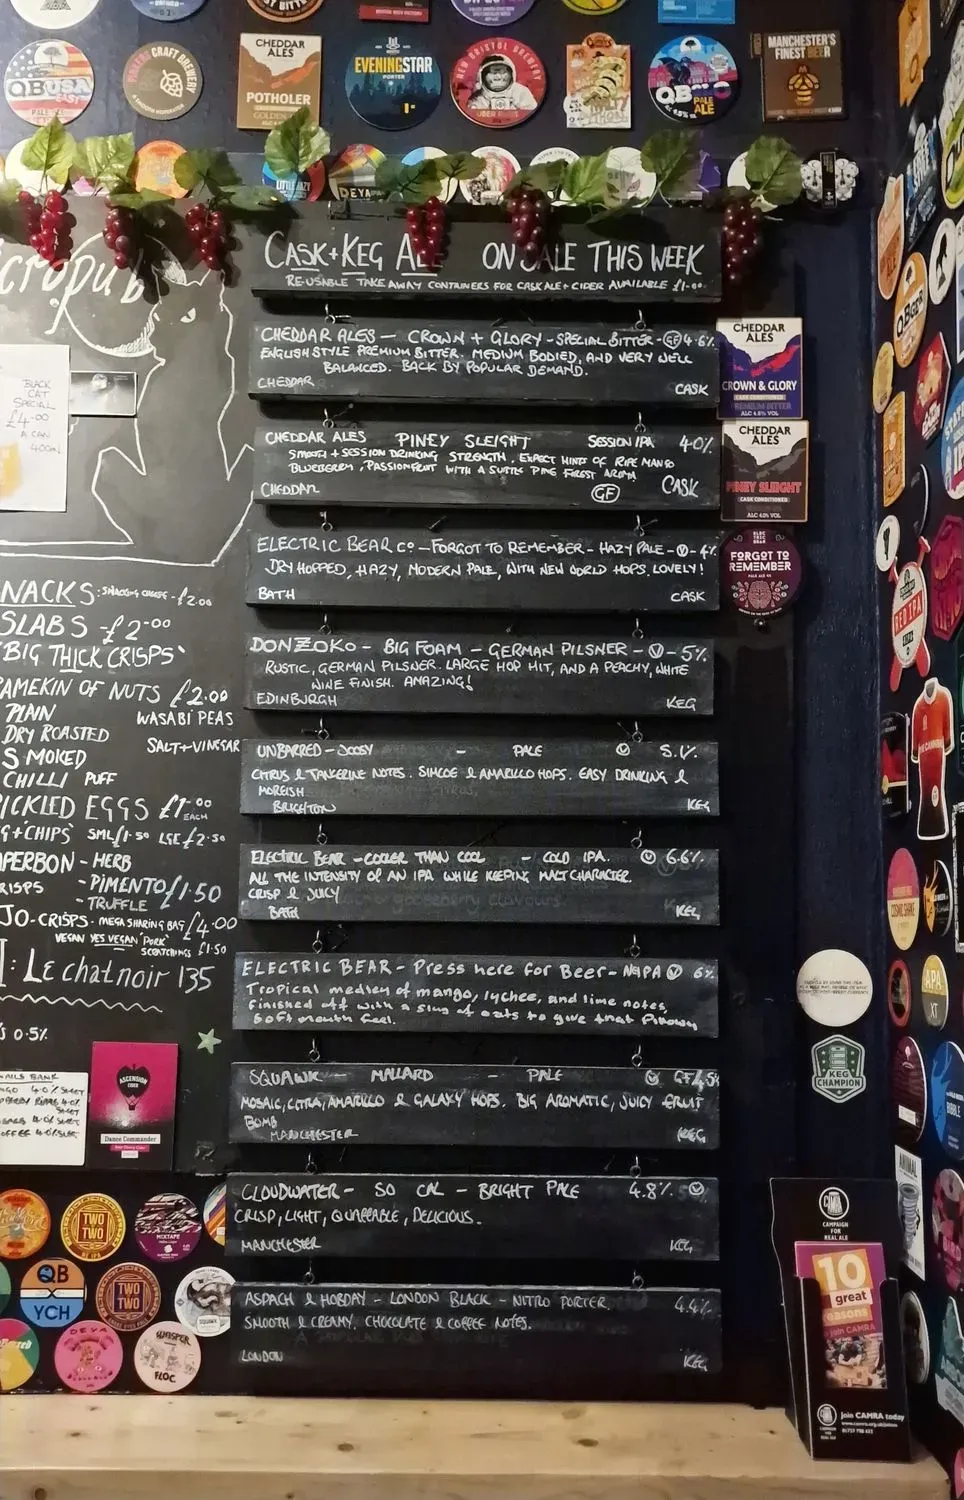 QB USA
EAST
CRAFT BREWERY
CHEDDAR
ALES
POTHOLER
GOLDEN ALE
EVENING STAR
PORTER
NEW BRISTOL BREWERY
PALE ALE
MANCHESTER'S
FINEST BEER
LITTLE JAZZ
DEYA
CASK + KEG ON SALE THIS WEEK
RE-USABLE TAKE AWAY CONTAINERS FOR CASK ALE + CIDER AVAILABLE £1-00
CHEDDAR ALES — CROWN + GLORY - SPECIAL BITTER - GF 4.6%
ENGLISH STYLE PREMIUM BITTER. MEDIUM BODIED, AND VERY WELL
BALANCED. BACK BY POPULAR DEMAND.
CHEDDAR CASK
CHEDDAR ALES PINEY SLEIGHT SESSION IPA 4.0%
SMOOTH + SESSION DRINKING STRENGTH. EXPECT HINTS OF RIPE MANGO
BLUEBERRY, PASSIONFRUIT WITH A SUBTLE PINE FOREST AROMA
CHEDDAR GF CASK
ELECTRIC BEAR CO — FORGOT TO REMEMBER - HAZY PALE - V - 4%
DRY HOPPED, HAZY, MODERN PALE, WITH NEW WORLD HOPS. LOVELY!
BATH CASK
DONZOKO - BIG FOAM - GERMAN PILSNER - V - 5%
RUSTIC, GERMAN PILSNER. LARGE HOP HIT, AND A PEACHY, WHITE
WINE FINISH. AMAZING!
EDINBURGH KEG
UNBARRED - JOOSY - PALE V 5.1%
CITRUS & TANGERINE NOTES. SIMCOE & AMARILLO HOPS. EASY DRINKING &
MOREISH
BRIGHTON KEG
ELECTRIC BEAR - COOLER THAN COOL - COLD IPA. V 6.6%
ALL THE INTENSITY OF AN IPA WHILE KEEPING MALT CHARACTER.
CRISP & JUICY
BATH KEG
ELECTRIC BEAR - Press here for Beer - NEIPA V 6%
Tropical medley of mango, lychee, and lime notes,
finished off with a slug of oats to give that pillowy
soft mouth feel.
SQUAWK - MALLARD - PALE V GF 4.5%
MOSAIC, CITRA, AMARILLO & GALAXY HOPS. BIG AROMATIC, JUICY FRUIT
BOMB
MANCHESTER KEG
CLOUDWATER - SO CAL - BRIGHT PALE 4.8% V
CRISP, LIGHT, QUAFFABLE, DELICIOUS.
MANCHESTER KEG
ASPACH & HOBDAY - LONDON BLACK - NITRO PORTER. 4.4%
SMOOTH & CREAMY, CHOCOLATE & COFFEE NOTES.
LONDON KEG
BLACK
CAT
SPECIAL
£4-00
A CAN
SNACKS
£2.00
SLABS - £2-00
"BIG THICK CRISPS"
RAMEKIN OF NUTS £2.00
PLAIN WASABI PEAS
DRY ROASTED
SMOKED SALT + VINEGAR
CHILLI PUFF
PICKLED EGGS £1.00
EACH
G + CHIPS SML £1.50 LGE £2.50
APERBON - HERB
CRISPS - PIMENTO £1.50
- TRUFFLE
JO-CRISPS. MEGA SHARING BAG £4.00
VEGAN YES VEGAN 'PORK'
SCRATCHINGS £1.50
: Le chatnoir 135
0.5%
ASCENSION
CIDER
Dance Commander
CHEDDAR
ALES
CROWN & GLORY
CASK CONDITIONED
PREMIUM BITTER
ALC 4.6% VOL
CHEDDAR
ALES
PINEY SLEIGHT
CASK CONDITIONED
ALC 4.0% VOL
ELECTRIC
BEAR
FORGOT TO
REMEMBER
PALE ALE 4%
KEG
CHAMPION
RED IPA
COSMIC SHINE
APA
XT
TWO
TWO
MIXTAPE
QB
YCH
TWO
TWO
SQUAWK
DEYA
WHISPER
FLOC.
CAMRA
CAMPAIGN
FOR
REAL ALE
10
great
reasons
to join CAMRA
Join CAMRA today